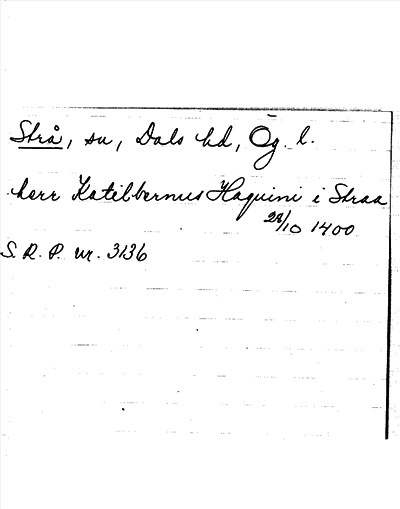 Strå, sn, Dals hd, Ög. l.
herr Katilbernus Haquini i Straa
23/10 1400
S. R. P. nr. 3136